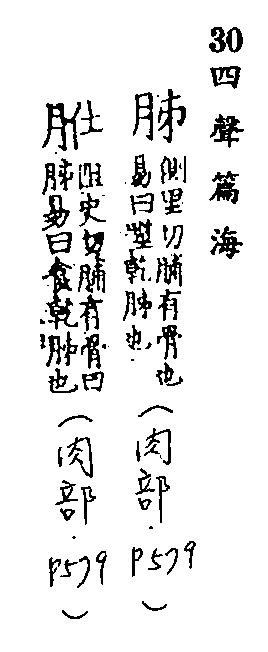 30四聲篇海
胏
側里切脯有骨也
易曰乾胏也
(肉部.P579)
阻史切脯有骨曰
胏易曰食乾胏也
(肉部.P579)